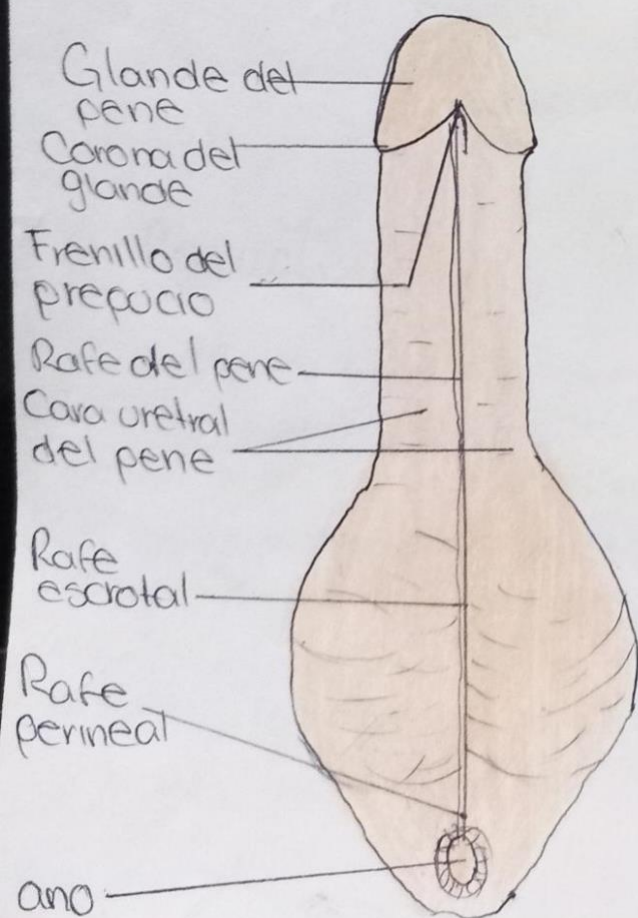 Glande del
pene
Corona del
glande
Frenillo del
prepucio
Rafe del pene
Cara uretral
del pene
Rafe
escrotal
Rafe
perineal
ano